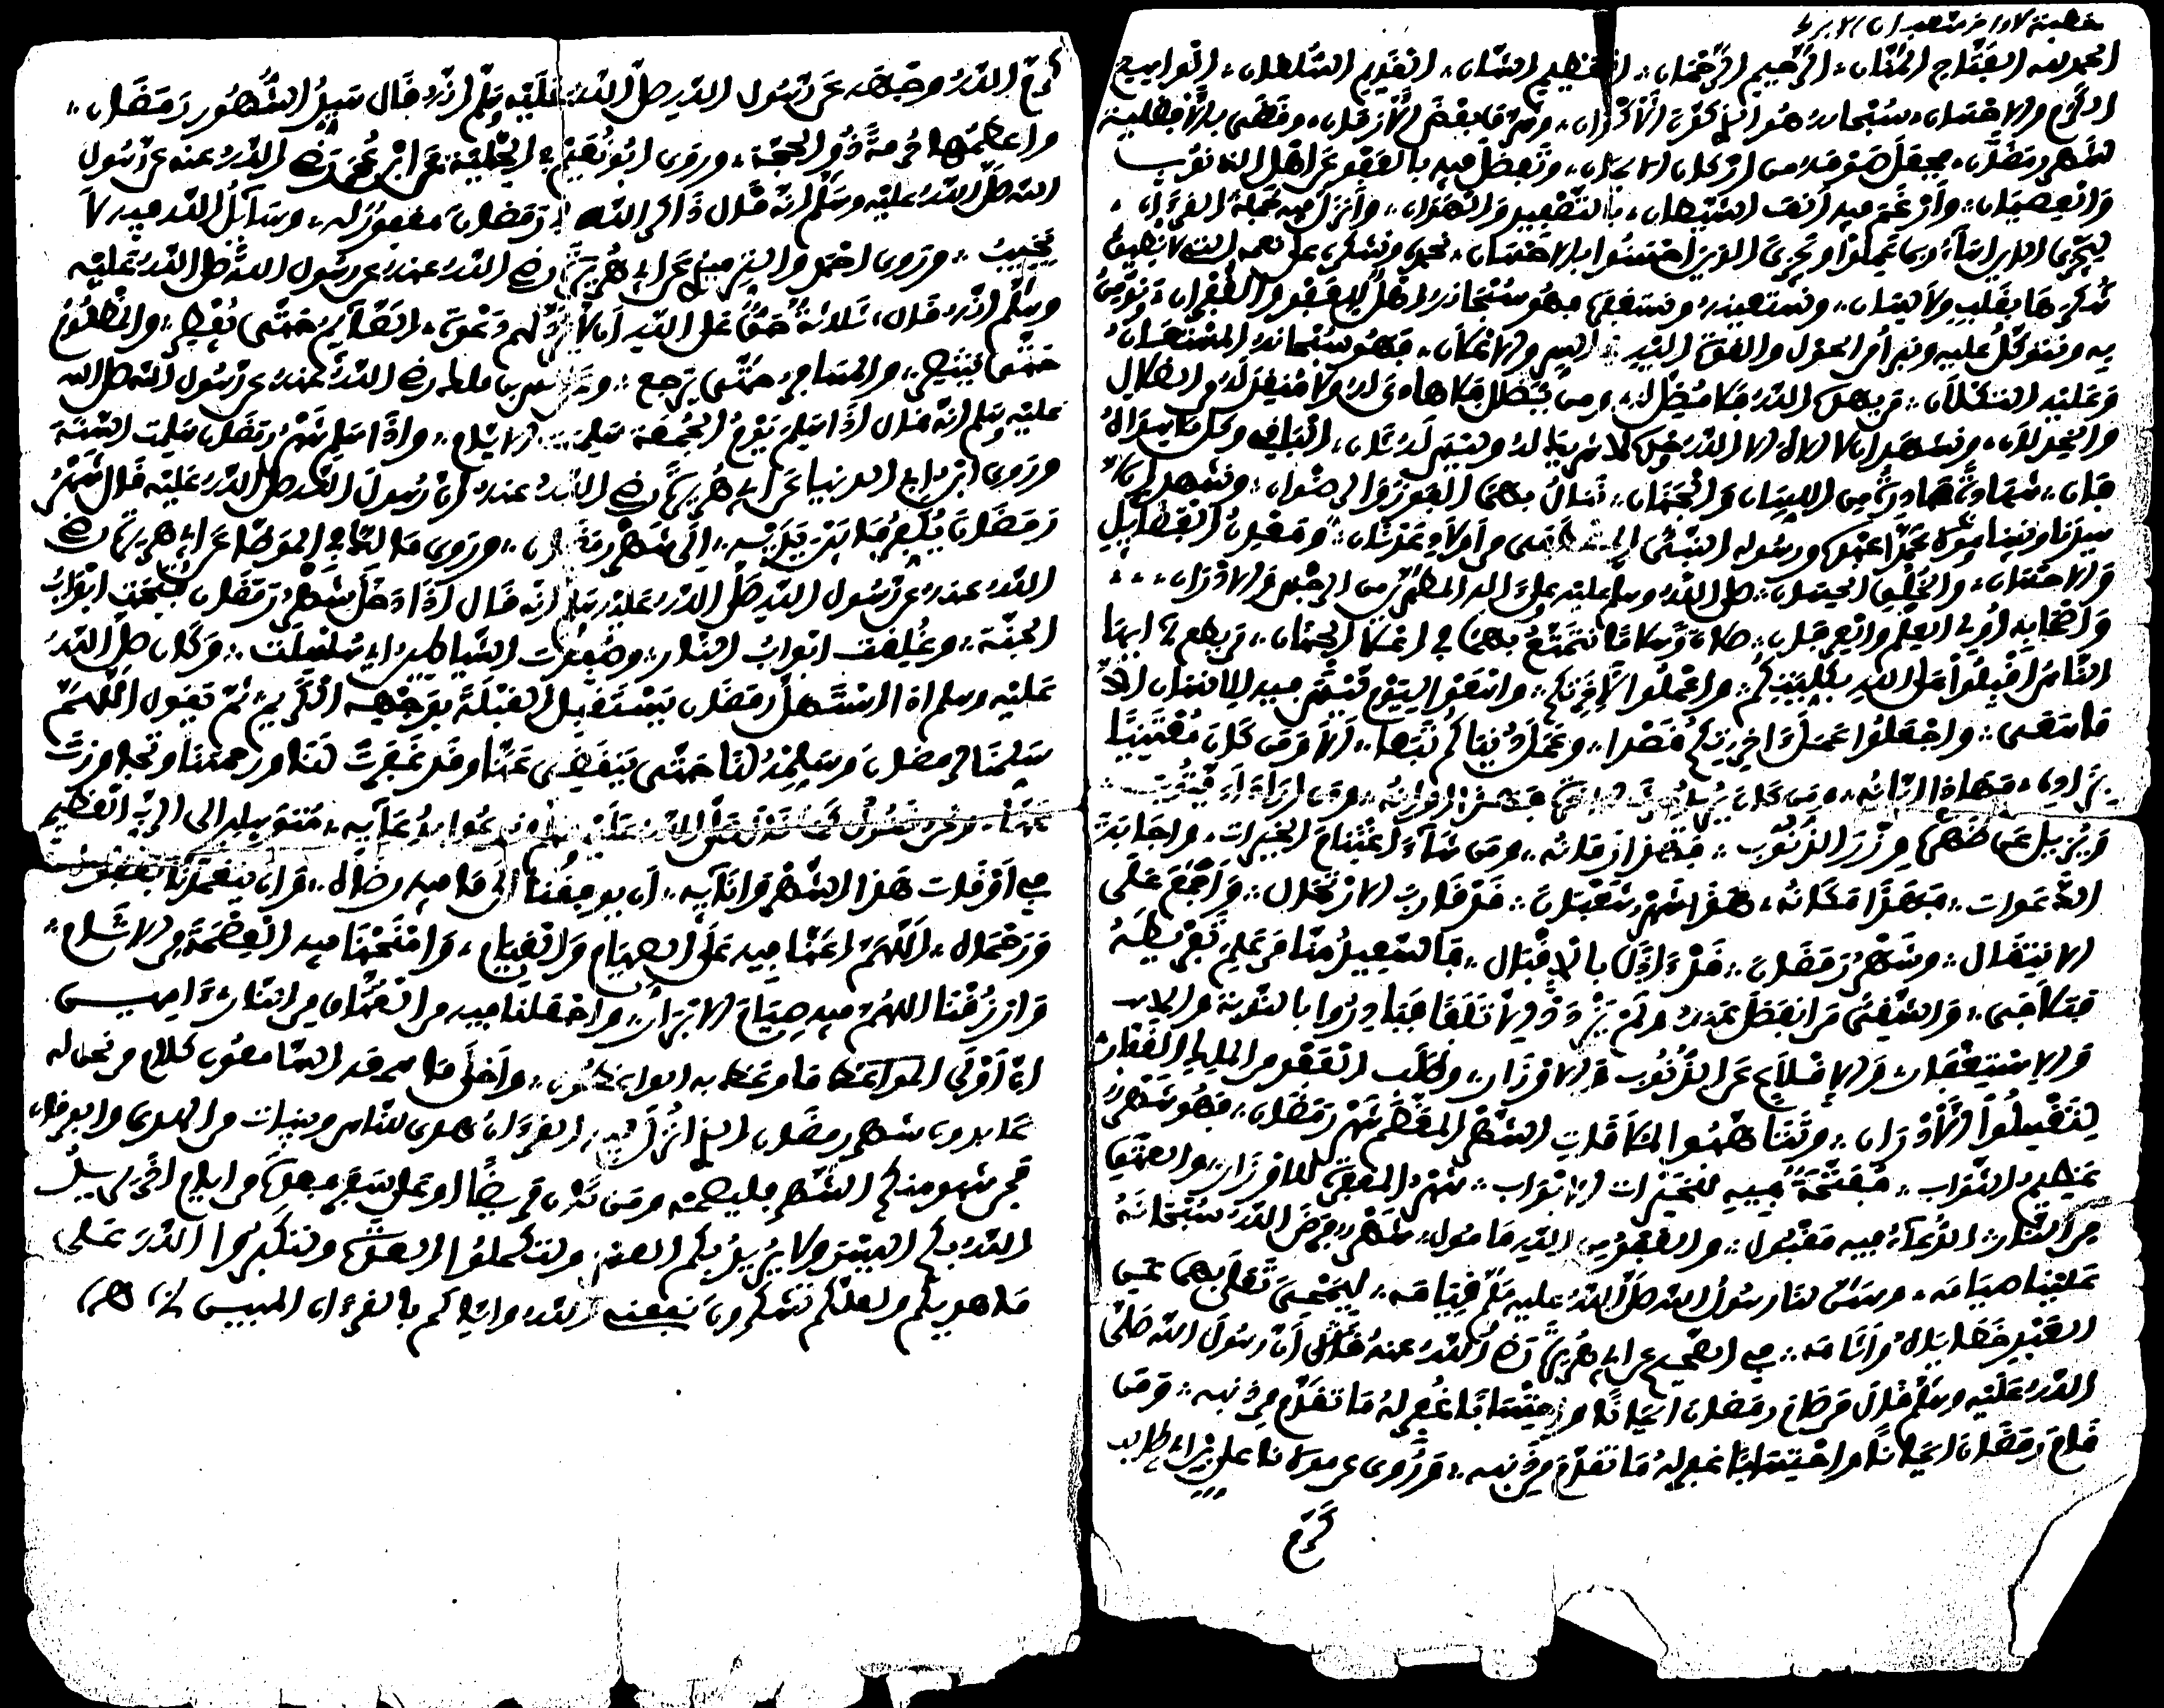 خطبة لاواخر شعبان
الحمد لله الفتاح المنان، الرحيم الرحمان، العظيم الشان، القديم السلطان، الواسع
الكرم والاحسان، سبحانه هو الذي كون الأكوان، وشرف بعض الأزمان، وقضى بالأفضلية
لشهر رمضان، فجعل صومه من اركان الايمان، وتفضل فيه بالعفو عن اهل الذنوب
والعصيان، وأرغم فيه أنف الشيطان، بالتصفيد والهوان، وأنزل فيه جملة القرءان،
ليجزي الذين اساءوا بما عملوا ويجزي الذين احسنوا بالاحسان، نحمده ونشكره على نعمه التي لا يطيق
شكرها بقلب ولا لسان، ونستعينه ونستغفره فهو سبحانه اهل العفو والغفران، ونومن
به ونتوكل عليه ونبرأ من الحول والقوة اليه في السر والاعلان، فهو سبحانه المستعان
وعليه التكلان، من يهد الله فلا مضل له، ومن يضلل فلا هادي له ولا منقذ له من الضلال
والخذلان، ونشهد ان لا اله الا الله وحده لا شريك له وليس له ثان، الباقي وكل ما سواه
فان، شهادة صادرة من اللسان والجنان، ننال بها الفوز والرضوان، ونشهد ان
سيدنا ونبينا ومولانا محمدا عبده ورسوله النبي المصطفى من اولاد عدنان، ومعدن الفضايل
والاحسان، والخلق الحسان، صلى الله وسلم عليه وعلى اله المطهرين من الرجس والادران،
وأصحابه أولي العلم والعرفان، صلاة وسلاما نتمتع بهما في اعلا الجنان، من يطع ايها
الناس اقبلوا على الله بكليتكم، واعملوا لآخرتكم، وانفقوا اليوم فليس فيه للانسان الا
ما سعى، واجعلوا عمل ءاخرتكم قصدا، وعمل دنياكم تبعا، ألا ومن كان مقتنيا
بزاده، فهاذا اوانه، ومن كان
ويزيل عن ظهره وزر الذنوب، فهذا زمانه، ومن شاء اغتنام الخيرات، واجابة
الدعوات، فهذا مكانه، هذا شهر شعبان، قد قارب الارتحال، وأجمع على
الانتقال، وشهر رمضان، قد ءاذن بالاقبال، فالسعيد منا من علم تفريطه
فتلافى، والشقي من انقضى عمره ولم يزدد الا تلافا فبادروا بالتوبة
والاستغفار، والاقلاع عن الذنوب والاوزار، وطلب العفو من المليك الغفار
لتغسلوا الأدران، وتتأهبوا لملاقات الشهر المعظم شهر رمضان، فهو شهر
عظيم الثواب، مفتحة فيه للخيرات الابواب، شهر المغفرة للاوزار، والعتق
من النار، الدعاء فيه مقبول، والعفو من الله مامول، شهر فرض الله سبحانه
علينا صيامه، وسن لنا رسول الله صلى الله عليه وسلم قيامه، ليمحى بهما عن
العبد خطاياه وءاثامه، في الصحيح عن ابي هريرة رضي الله عنه قال ان رسول الله صلى
الله عليه وسلم قال من صام رمضان ايمانا واحتسابا غفر له ما تقدم من ذنبه، ومن
قام رمضان ايمانا واحتسابا غفر له ما تقدم من ذنبه، وروي عن مولانا علي بن ابي طالب
كرم
كرم الله وجهه عن رسول الله صلى الله عليه وسلم انه قال سيد الشهور رمضان،
واعظمها حرمة ذو الحجة، وروى ابو نعيم في الحلية عن ابن عمر رضي الله عنه عن رسول
الله صلى الله عليه وسلم انه قال ذاكر الله في رمضان مغفور له، وسائل الله فيه لا
يخيب، وروى احمد والترمذي عن ابي هريرة رضي الله عنه عن رسول الله صلى الله عليه
وسلم انه قال، ثلاثة حق على الله أن لا يرد لهم دعوة، الصائم حتى يفطر، والمظلوم
حتى ينتصر، والمسافر حتى يرجع، وعن انس بن مالك رضي الله عنه عن رسول الله صلى الله
عليه وسلم انه قال اذا سلم يوم الجمعة سلمت الايام، واذا سلم شهر رمضان سلمت السنة
وروى ابن ابي الدنيا عن ابي هريرة رضي الله عنه ان رسول الله صلى الله عليه قال شهر
رمضان يكفر ما بين يديه، الى شهر رمضان، وروى مالك في الموطا عن ابي هريرة رضي
الله عنه عن رسول الله صلى الله عليه وسلم انه قال اذا دخل شهر رمضان فتحت ابواب
الجنة، وغلقت ابواب النار، وصفدت الشياطين، اي سلسلت، وكان صلى الله
عليه وسلم اذا استهل رمضان يستقبل القبلة بوجهه الكريم ثم يقول اللهم
سلمنا لرمضان وسلمه لنا حتى ينقضي عنا وقد غفرت لنا ورحمتنا وتجاوزت
عنا، ونحن نسأل كما سأل صلى الله عليه وسلم وندعوا بدعايه، متوسلين الى الرب العظيم
في أوقات هذا الشهر وءانايه، أن يوفقنا الى ما فيه رضاه، وان يتغمدنا بعفوه
ورحماه، اللهم اعنا فيه على الصيام والقيام، وامنحنا فيه العصمة من الاثام،
وارزقنا اللهم فيه صيام الابرار، واجعلنا فيه من العتقاء من النار ءامين
ان أولى المواعظ ما وعظ به الواعظون، وأحلى ما صرف السامعون كلام من نحن له
عابدون شهر رمضان الذي أنزل فيه القرءان هدى للناس وبينات من الهدى والفرقان
فمن شهد منكم الشهر فليصمه ومن كان مريضا او على سفر فعدة من ايام أخر يريد
الله بكم اليسر ولا يريد بكم العسر ولتكملوا العدة ولتكبروا الله على
ما هديكم ولعلكم تشكرون نفعنا الله واياكم بالقرءان المبين